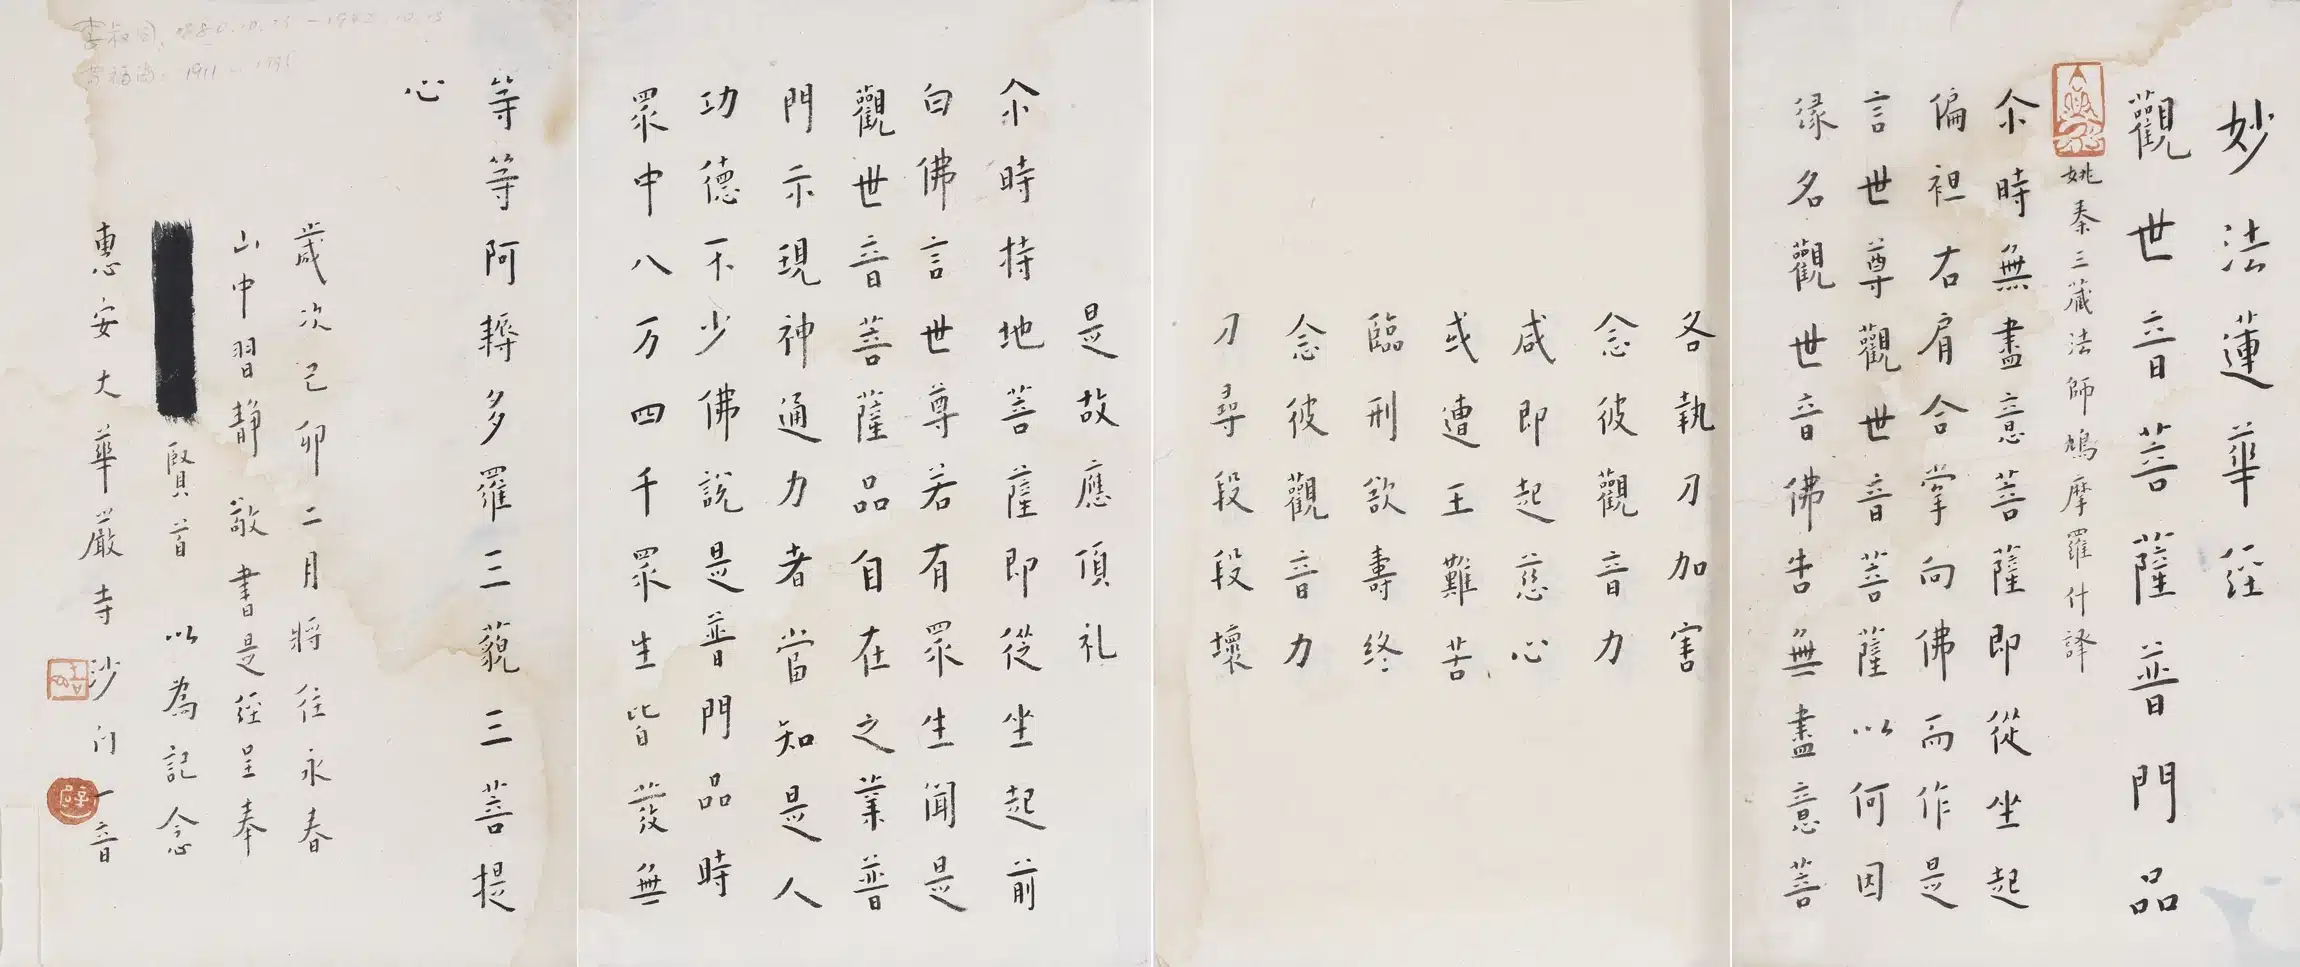 妙法蓮華經
觀世音菩薩普門品
姚秦三藏法師鳩摩羅什譯
尒時無盡意菩薩即從坐起
偏袒右肩合掌向佛而作是
言世尊觀世音菩薩以何因
緣名觀世音佛告無盡意菩
各執刀加害
念彼觀音力
咸即起慈心
或遭王難苦
臨刑欲壽終
念彼觀音力
刀尋段段壞
是故應頂礼
尒時持地菩薩即從坐起前
白佛言世尊若有眾生聞是
觀世音菩薩品自在之業普
門示現神通力者當知是人
功德不少佛說是普門品時
眾中八万四千眾生皆發無
等等阿耨多羅三藐三菩提
心
歲次己卯二月將往永春
山中習靜敬書是經呈奉
賢首 以為記念
惠安大華嚴寺沙門一音
李叔同 1880.10.23 - 1942.10.13